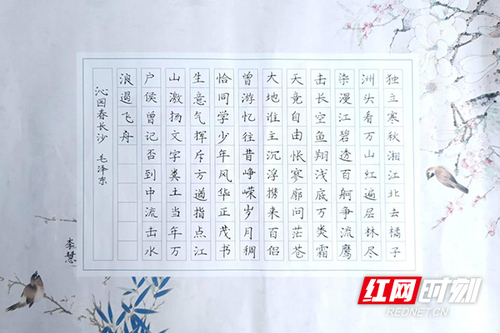 独立寒秋湘江北去橘子
洲头看万山红遍层林尽
染漫江碧透百舸争流鹰
击长空鱼翔浅底万类霜
天竞自由怅寥廓问茫苍
大地谁主沉浮携来百侣
曾游忆往昔峥嵘岁月稠
恰同学少年风华正茂书
生意气挥斥方遒指点江
山激扬文字粪土当年万
户侯曾记否到中流击水
浪遏飞舟
沁园春长沙 毛泽东
李慧
红网时刻
REDNET.CN